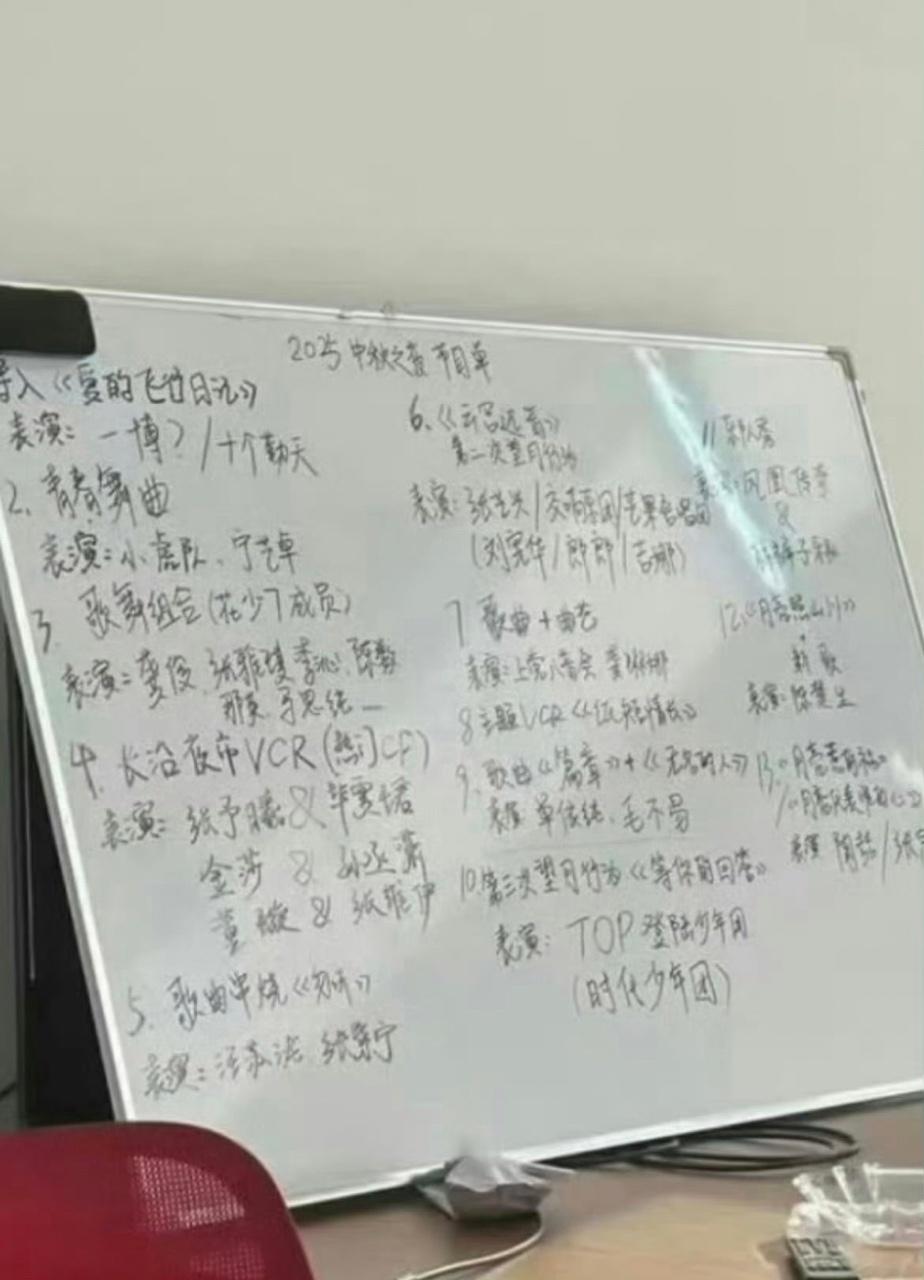 2025中秋之夜 节目单
导入《爱的飞行日记》
表演：一博？/十个勤天
2. 青春舞曲
表演：小虎队、宁艺卓
3. 歌舞组合（花少7成员）
表演：龚俊、张雅琪 李沁、陈数
那英、马思纯
4. 长沙夜市VCR（热门CP）
表演：张予曦&
金莎 & 孙丞潇
董璇 & 张维伊
5. 歌曲串烧
表演：汪苏泷、张紫宁
6.《云宫迅音》
第二次望月行为
表演：张艺兴/交响乐团/芒果合唱团
（刘宪华/郎郎/吉娜）
7 歌曲+曲艺
表演：上党八音会 龚琳娜
8 主题VCR
9. 歌曲《篇章》+《无名的人》
表演 单依纯、毛不易
10. 第三次望月行为《等你的回答》
表演：TOP登陆少年团
（时代少年团）
11
表演：凤凰传奇
&
12.《月亮照山川》
+
新歌
表演：陈楚生
13.
表演